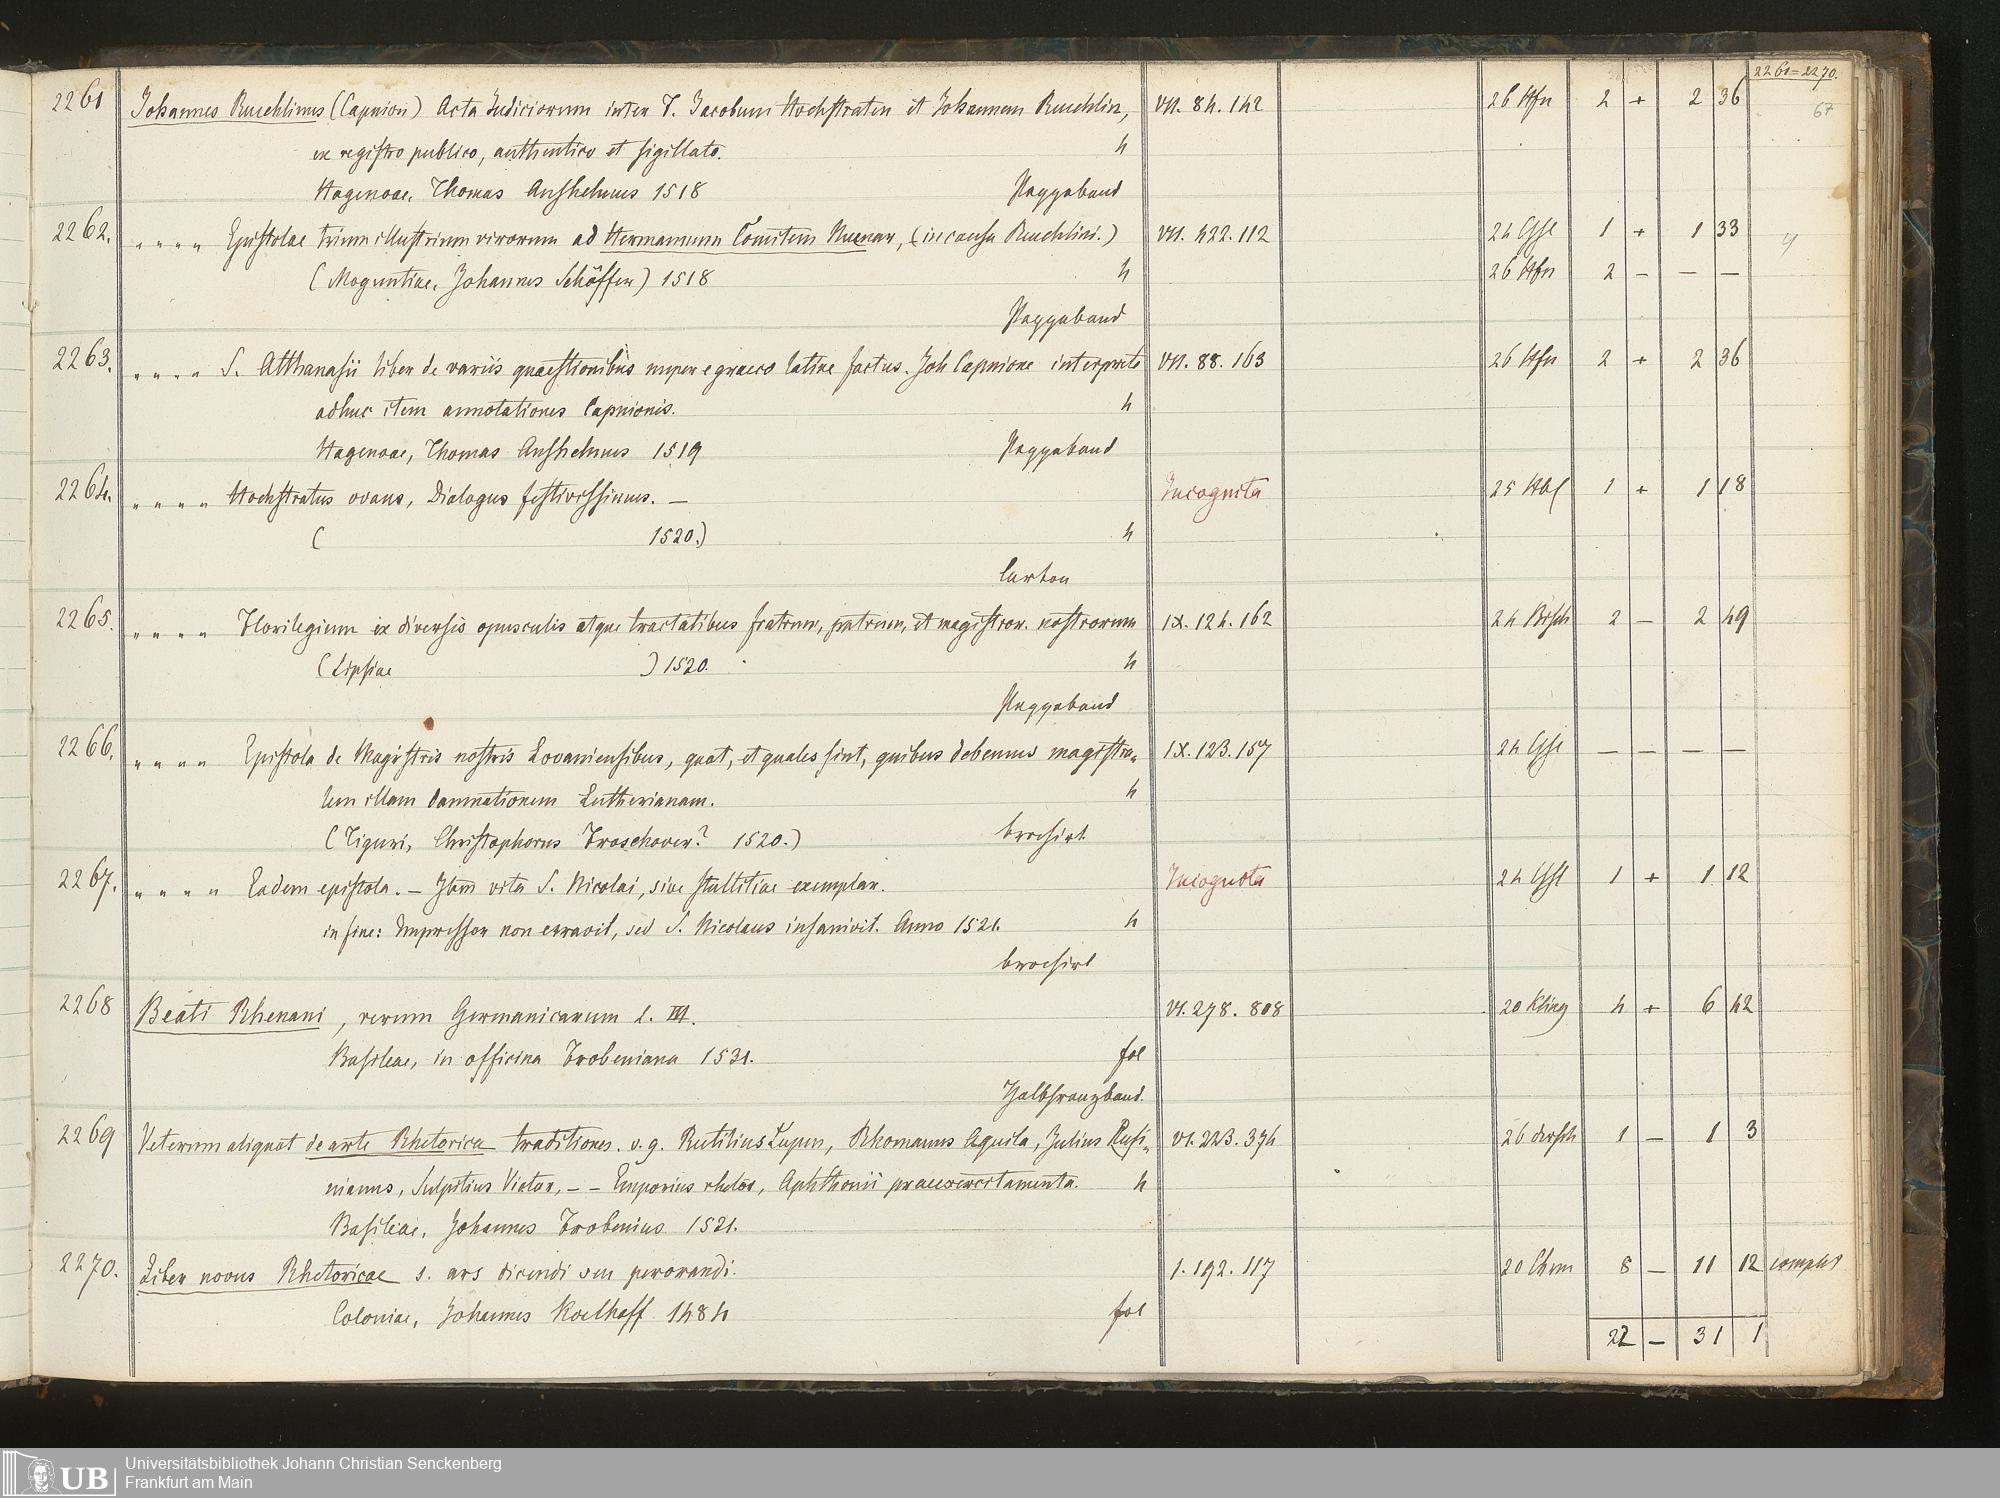 2261=2270.
67
2261 Johannes Reuchlinus (Capnion) Acta Judiciorum inter F. Jacobum Hochstraten et Johannem Reuchlin, VII. 84. 142 26 Hfn 2 + 2 36
ex registro publico, authentico et sigillato. 4
Hagenoae, Thomas Anshelmus 1518 Pappband
2262. " " " " Epistolae trium illustrium virorum ad Hermannum Comitem Nuenar, (in causa Reuchlini.) VII. 422. 112 24 Gsl 1 + 1 33
(Moguntiae, Johannes Schöffer) 1518 4 26 Hfn 2 — — —
Pappband
2263. " " " " S. Atthanasii liber de variis quaestionibus nuper e graeco latine factus. Joh Capnione interprete VII. 88. 163 26 Hfn 2 + 2 36
adhuc item annotationes Capnionis. 4
Hagenoae, Thomas Anshelmus 1519 Pappband
2264. " " " " Hochstratus ovans, Dialogus festivissimus. — Incognita 25 1 + 1 18
( 1520.) 4
Carton
2265. " " " " Florilegium ex diversis opusculis atque tractatibus fratrum, patrum, et magistror. nostrorum IX. 124. 162 24 Brsch 2 — 2 49
(Lipsiae ) 1520. 4
Pappband
2266. " " " " Epistola de Magistris nostris Lovaniensibus, quot, et quales sint, quibus debemus magistra- IX. 123. 157 24 Gsl — — — —
lem illam damnationem Lutherianam. 4
(Tiguri, Christophorus Froschover? 1520.) brochirt
2267. " " " " Eadem epistola. — Item vita S. Nicolai, sive stultitiae exemplar. Incognota 24 Gsl 1 + 1 12
in fine: Impressor non erravit, sed S. Nicolaus insanivit. Anno 1521. 4
brochirt
2268 Beati Rhenani, rerum Germanicarum l. III. VI. 278. 808 20 Kling 4 + 6 42
Basileae, in officina Frobeniana 1531. fol
Halbfranzband.
2269 Veterum aliquot de arte Rhetorica traditiones. v. g. Rutilius Lupus, Rhomanus Aquila, Julius Rufi- VI. 223. 374 26 1 — 1 3
nianus, Sulpitius Viator, — — Emporius rhetor, Aphthonii praeexercitamenta. 4
Basileae, Johannes Frobenius 1521.
2270. Liber novus Rhetoricae s. ars dicendi seu perorandi. I. 192. 117 20 Chrm 8 — 11 12 complet
Coloniae, Johannes Koelhoff 1484 fol
22 — 31 1
UB Universitätsbibliothek Johann Christian Senckenberg
Frankfurt am Main